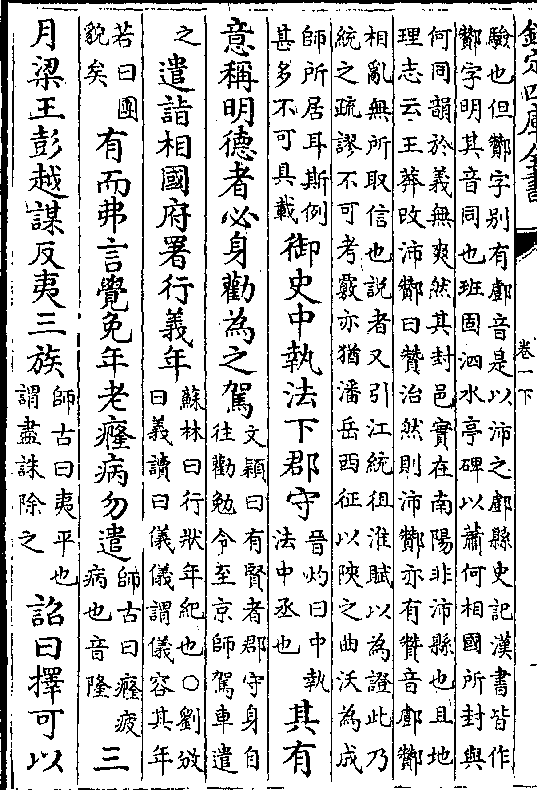 欽定四庫全書
卷一下
驗也但酇字别有鄌音是以沛之鄌縣史記漢書皆作
酇字明其音同也班固泗水亭碑以蕭何相國所封與
何同韻於義無爽然其封邑實在南陽非沛縣也且地
理志云王莽改沛酇曰贊治然則沛酇亦有贊音鄌酇
相亂無所取信也説者又引江統徂淮賦以為證此乃
統之疏謬不可考覈亦猶潘岳西征以陝之曲沃為成
師所居耳斯例甚多不可具載御史中執法下郡守晉灼曰中執法中丞也其有
意稱明德者必身勸為之駕文穎曰有賢者郡守身自往勸勉令至京師駕車遣
之遣詣相國府署行義年蘇林曰行狀年紀也○劉攽曰義讀曰儀儀謂儀容其年
若曰團貌矣有而弗言覺免年老癃病勿遣師古曰癃疲病也音隆三
月梁王彭越謀反夷三族師古曰夷平也謂盡誅除之詔曰擇可以